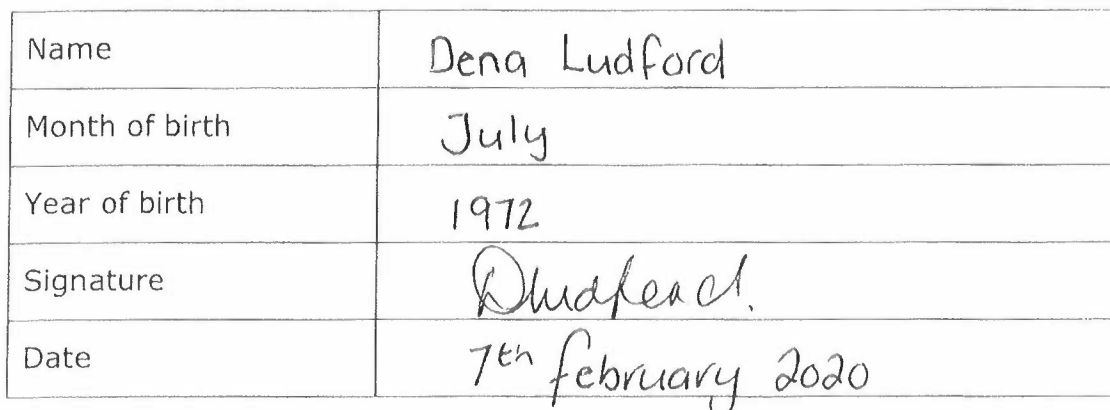 Name Dena Ludford
Month of birth July
Year of birth 1972
Signature DLudford.
Date 7th february 2020